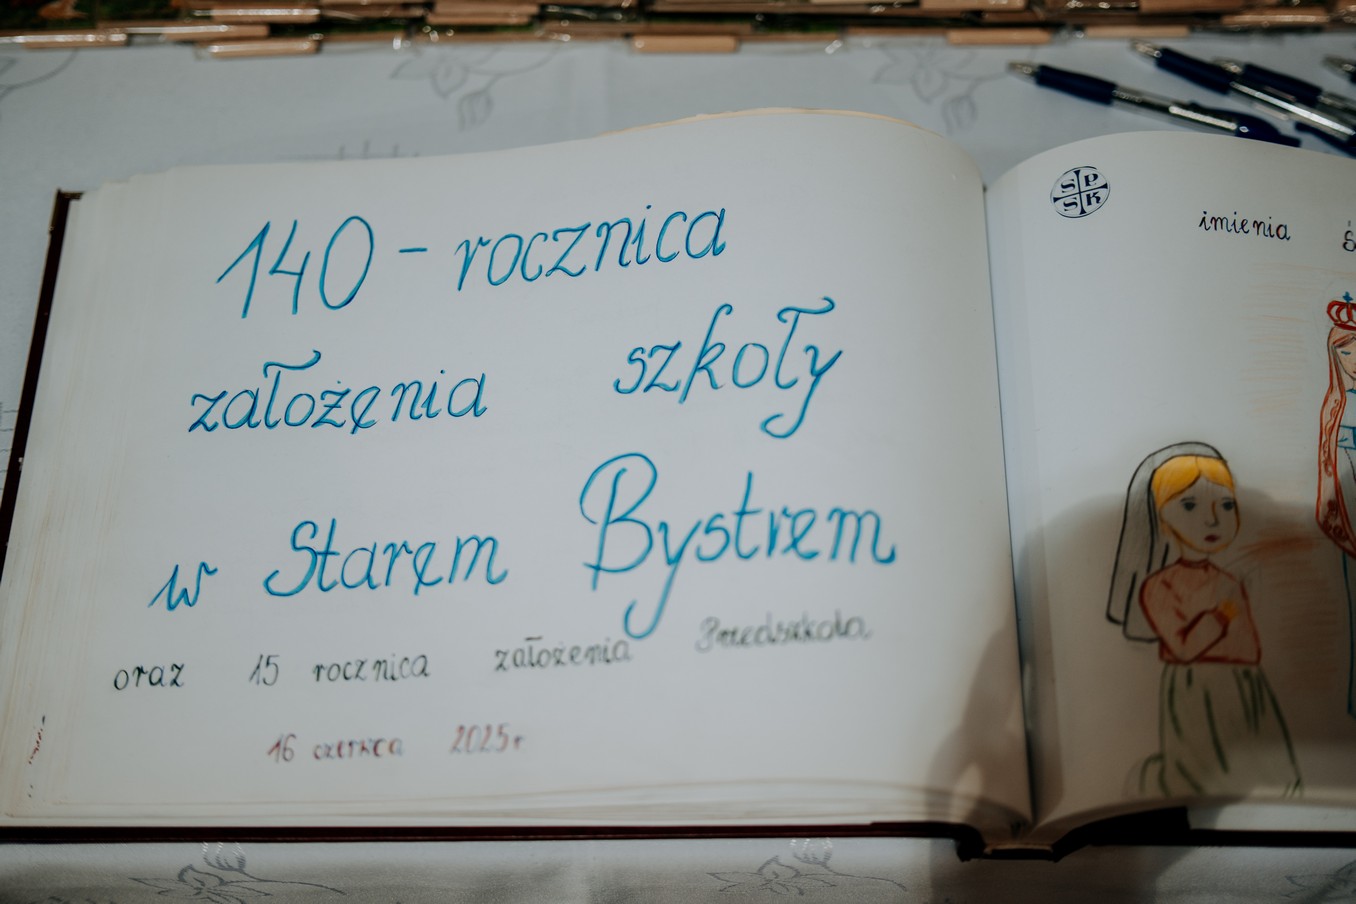 140 - rocznica
założenia szkoły
w Starem Bystrem
oraz 15 rocznica założenia Przedszkola
16 czerwca 2025r
S P
S K
imienia